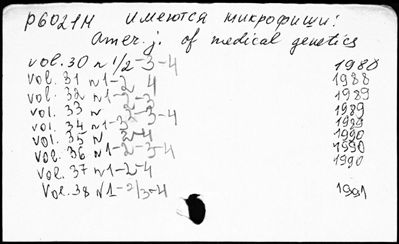 P6021M имеются микрофиши:
Amer. j. of medical genetics
vol. 30 N 1/2-3-4 1988
vol. 31 N 1-2 4 1988
vol. 32 N 1-2-3 1989
vol. 33 N 1989
vol. 34 N 1-3 3-4 1989
vol. 35 N 2-4 1990
vol. 36 N 1-2-3-4 1990
vol. 37 N 1-2-4 1990
vol. 38 N 1-2/3-4 1991